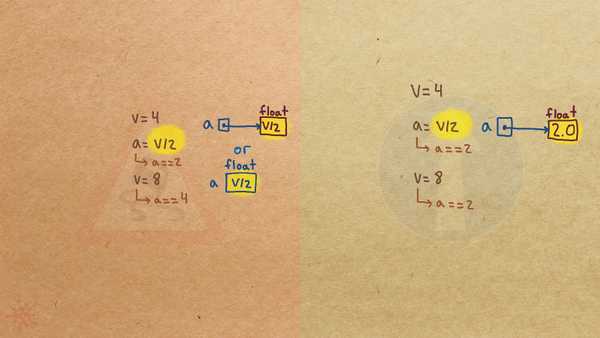 V=4
a= V/2
a==2
V=8
a==4
a
float
V/2
or
float
a
V/2
V=4
a= V/2
a==2
V=8
a==2
a
float
2.0